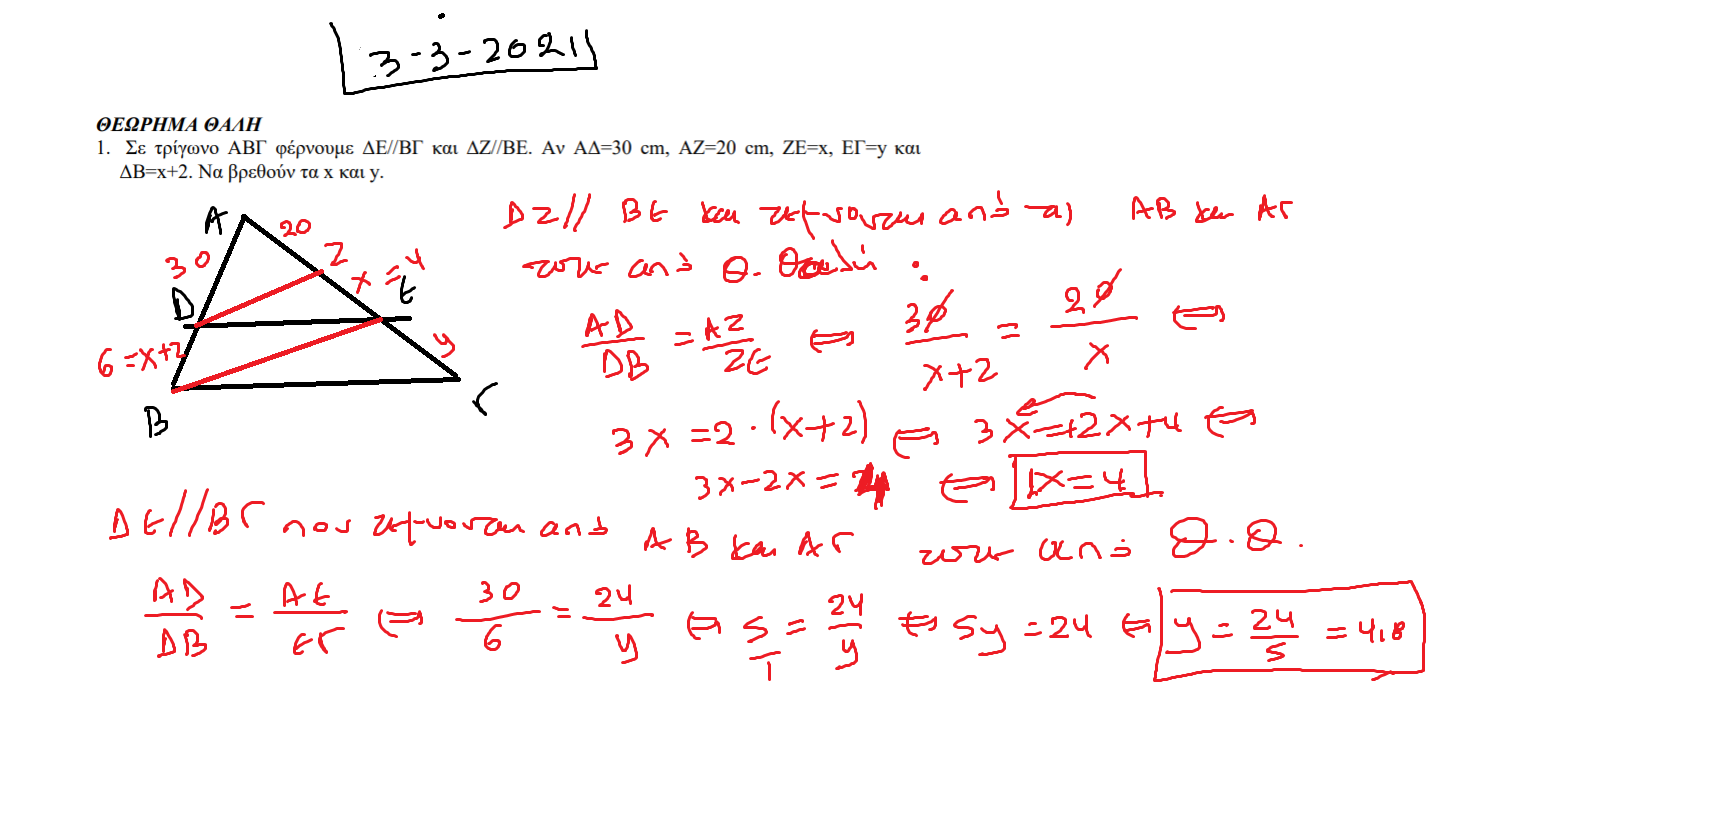 3-3-2021
ΘΕΩΡΗΜΑ ΘΑΛΗ
1. Σε τρίγωνο ΑΒΓ φέρνουμε ΔΕ//ΒΓ και ΔΖ//ΒΕ. Αν ΑΔ=30 cm, ΑΖ=20 cm, ΖΕ=x, ΕΓ=y και
ΔΒ=x+2. Να βρεθούν τα x και y.
Α 20
30 Ζ
x = 4
Δ Ε
6 = x+2 y
Β Γ
ΔΖ// ΒΕ και τέμνονται από τις ΑΒ και ΑΓ
τότε από Θ. Θαλή :
ΑΔ/ΔΒ = ΑΖ/ΖΕ ⇔ 30/x+2 = 20/x ⇔
3x = 2·(x+2) ⇔ 3x = +2x+4 ⇔
3x-2x = 4 ⇔ 1x=4
ΔΕ//ΒΓ που τέμνονται από ΑΒ και ΑΓ τότε από Θ.Θ.
ΑΔ/ΔΒ = ΑΕ/ΕΓ ⇔ 30/6 = 24/y ⇔ 5/1 = 24/y ⇔ 5y = 24 ⇔ y = 24/5 = 4,8